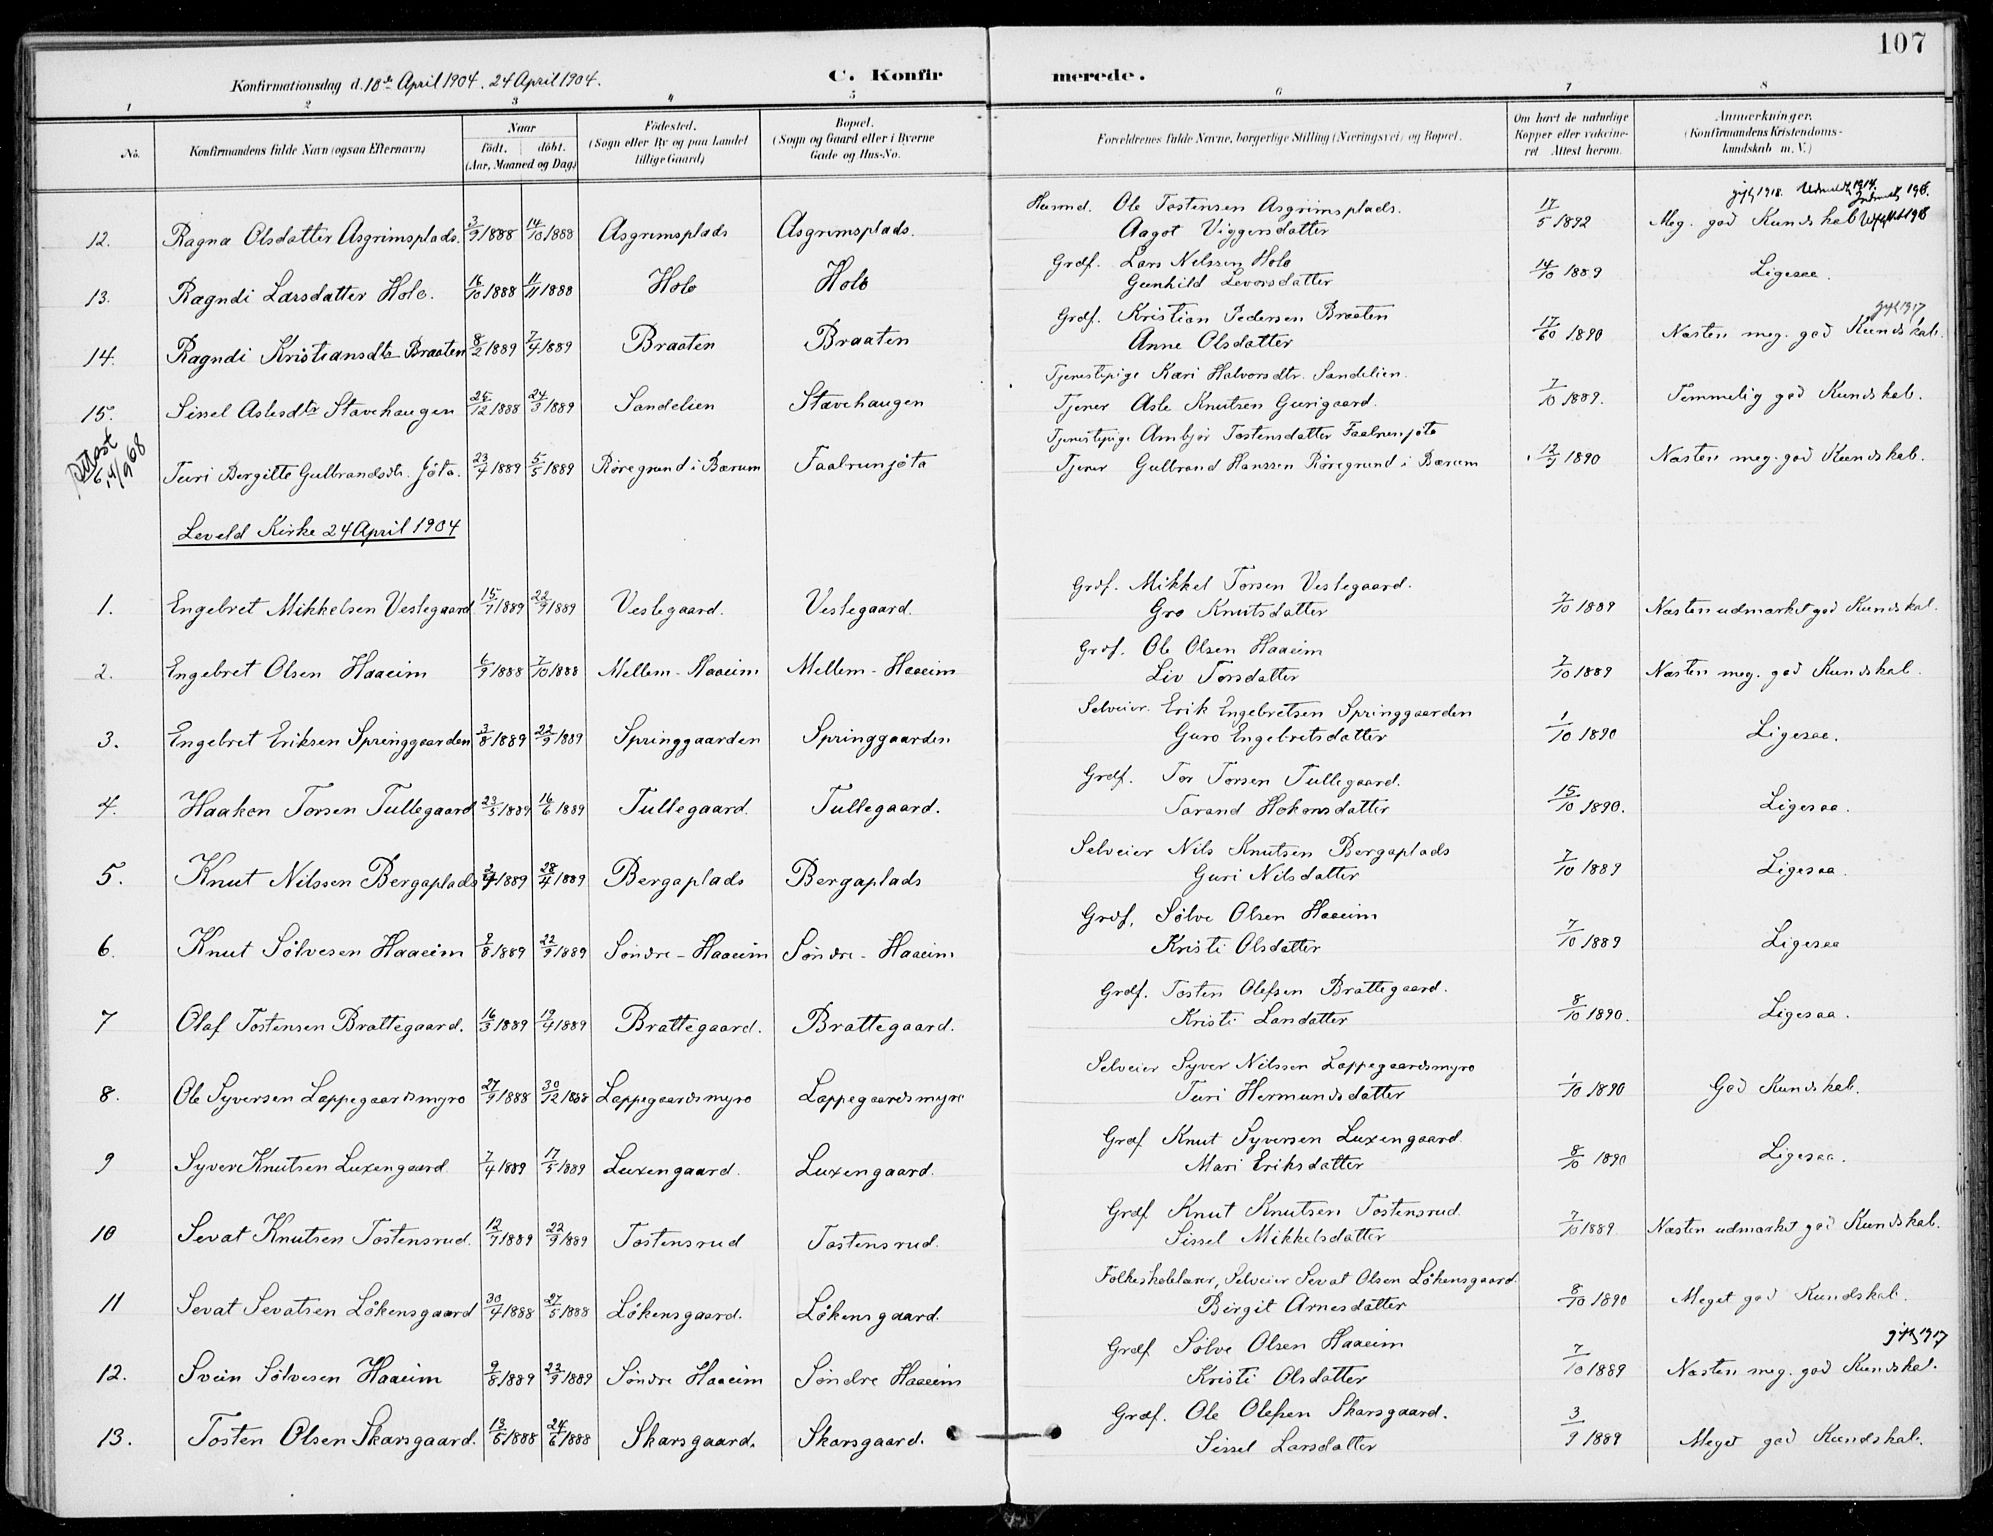 107
Konfirmationsdag d. 18de April 1904. 24 April 1904.
C. Konfirmerede.
1 2 3 4 5 6 7 8
No.
Konfirmandens fulde Navn (ogsaa Efternavn)
Naar
født. døbt.
(Aar, Maaned og Dag)
Fødested.
(Sogn eller By og paa Landet
tillige Gaard)
Bopæl.
(Sogn og Gaard eller i Byerne
Gade og Hus-No.
Forældrenes fulde Navne, borgerlige Stilling (Næringsvei) og Bopæl.
Om havt de naturlige
Kopper eller vakcine-
ret Attest herom.
Anmærkninger.
(Konfirmandens Kristendoms-
kundskab m. V.)
gift 1918.
12. Ragna Olsdatter Asgrimsplads. 3/9 1888 14/10 1888 Asgrimsplads Asgrimsplads. Husmd. Ole Tostensen Asgrimsplads. 17/5 1892 Meg. god Kundskab
Aagot Viggersdatter
13. Ragndi Larsdatter Holo. 16/10 1888 11/11 1888 Holo Holo Grdf. Lars Nilssen Holo 14/10 1889 Ligesaa.
Gunhild Levorsdatter
gift 1917
14. Ragndi Kristiansdtr Braaten 8/2 1889 7/4 1889 Braaten Braaten Grdf. Kristian Pedersen Braaten 1890 Næsten meg. god Kundskab.
Anne Olsdatter
15. Sissel Aslesdtr Stavehaugen 1888 24/3 1889 Sandelien Stavehaugen Tjenestepige Kari Halvorsdtr. Sandelien. 7/10 1889. Temmelig god Kundskab.
Tjener Asle Knutsen Gurigaard.
Attest
Turi Bergitte Gulbrandsdtr. Jøta. 23/4 1889 5/5 1889 Røregrund i Bærum Faalrunjøta Tjenestepige Ambjør Tostensdatter Faalrunjøta 12/9 1890 Næsten meg. god Kundskab.
Tjener Gulbrand Hanssen Røregrund i Bærum
Leveld Kirke 24 April 1904
1. Engebret Mikkelsen Vestegaard 15/7 1889 22/9 1889 Vestegaard. Vestegaard. Grdf. Mikkel Torsen Vestegaard. 7/10 1889 Næsten udmærket god Kundskab.
Gro Knutsdatter
2. Engebret Olsen Haaeim 6/9 1888 7/10 1888 Mellem-Haaeim Mellem-Haaeim Grdf. Ole Olsen Haaeim 7/10 1889 Næsten meg. god Kundskab.
Liv Torsdatter
3. Engebret Eriksen Springgaarden 3/8 1889 22/9 1889 Springgaarden Springgaarden Selveier. Erik Engebretsen Springgaarden 1/10 1890 Ligesaa.
Guro Engebretsdatter
4. Haakon Torsen Tullegaard 23/5 1889 16/6 1889 Tullegaard. Tullegaard. Grdf. Tor Torsen Tullegaard. 15/10 1890. Ligesaa.
Tarand Hokonsdatter
5. Knut Nilssen Bergaplads 1889 28/4 1889 Bergaplads Bergaplads Selveier Nils Knutsen Bergaplads 7/10 1889 Ligesaa.
Guri Nilsdatter
6. Knut Sølvesen Haaeim 9/8 1889 22/9 1889 Søndre-Haaeim Søndre-Haaeim Grdf. Sølve Olsen Haaeim 7/10 1889 Ligesaa
Kristi Olsdatter
7 Olaf Tostensen Brattegaard. 16/3 1889 19/4 1889 Brattegaard. Brattegaard. Grdf. Tosten Olefsen Brattegaard. 8/10 1890. Ligesaa.
Kristi Larsdatter
8. Ole Syversen Lappegaardsmyro 27/9 1888 30/12 1888 Lappegaardsmyro Lappegaardsmyro Selveier Syver Nilssen Lappegaardsmyro 1/10 1890 God Kundskab.
Turi Hermundsdatter
9 Syver Knutsen Luxengaard 7/4 1889 17/5 1889 Luxengaard. Luxengaard. Grdf Knut Syversen Luxengaard 8/10 1890 Ligesaa.
Mari Eriksdatter
10 Sevat Knutsen Tostensrud. 12/9 1889 22/9 1889 Tostensrud Tostensrud. Grdf Knut Knutsen Tostensrud 7/10 1889 Næsten udmærket god Kundskab.
Sissel Mikkelsdatter
11 Sevat Sevatsen Løkensgaard 30/4 1888 27/5 1888 Løkensgaard. Løkensgaard. Folkeskolelærer, Selveier Sevat Olsen Løkensgaard. 8/10 1890 Meget god Kundskab.
Birgit Arnesdatter
gift 1917
12. Svein Sølvesen Haaeim 9/8 1889 22/9 1889 Søndre Haaeim Søndre Haaeim Grdf Sølve Olsen Haaeim 7/10 1889 Næsten meg. god Kundskab.
Kristi Olsdatter
13. Tosten Olsen Skarsgaard. 13/5 1888 24/6 1888 Skarsgaard. Skarsgaard. Grdf. Ole Olefsen Skarsgaard. 3/9 1889 Meget god Kundskab.
Sissel Larsdatter